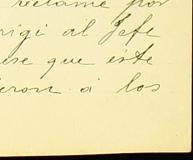 reclame por
rigi al Jefe
ese que éste
ieron á los